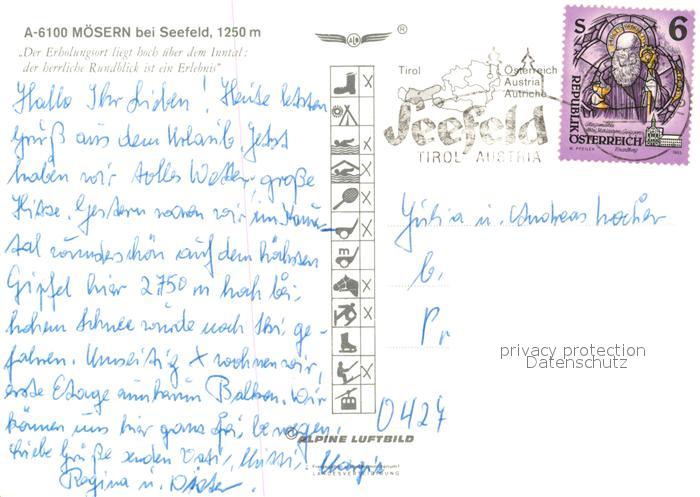 A-6100 MÖSERN bei Seefeld, 1250 m
„Der Erholungsort liegt hoch über dem Inntal:
der herrliche Rundblick ist ein Erlebnis"
Hallo Ihr Lieben! Heute letzten
Gruß aus dem Urlaub. Jetzt
haben wir tolles Wetter, große
Hitze. Gestern waren wir im Kaun-
tal wunderschön auf dem höchsten
Gipfel hier 2750 m hoch bei
hohem Schnee wurde noch Ski ge-
fahren. Umseitig X wohnen wir,
erste Etage Balkon. Wir
können uns hier ganz frei bewegen.
Liebe Grüße senden Vati, Mutti,
Regina u. Dieter.
ALPINE LUFTBILD
Tirol
Österreich
Austria
Autriche
Seefeld
TIROL AUSTRIA
S 6
REPUBLIK
ÖSTERREICH
Julia u. Andreas
b.
Pr
privacy protection
Datenschutz
0427